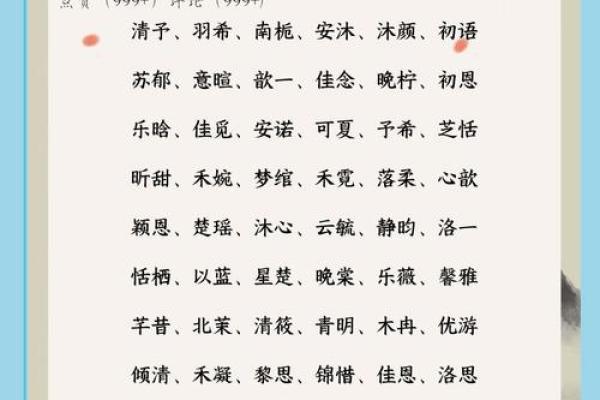 点赞（999+）评论（999+）
清予、羽希、南栀、安沐、沐颜、初语
苏郁、意暄、歆一、佳念、晚柠、初恩
乐晗、佳觅、安诺、可夏、予希、芝恬
昕甜、禾婉、梦绾、禾霓、落柔、心歆
颖恩、楚瑶、沐心、云毓、静昀、洛一
恬栖、以蓝、星楚、晚棠、乐薇、馨雅
芊昔、北茉、清筱、青明、木冉、优游
倾清、禾凝、黎恩、锦惜、佳恩、洛恩